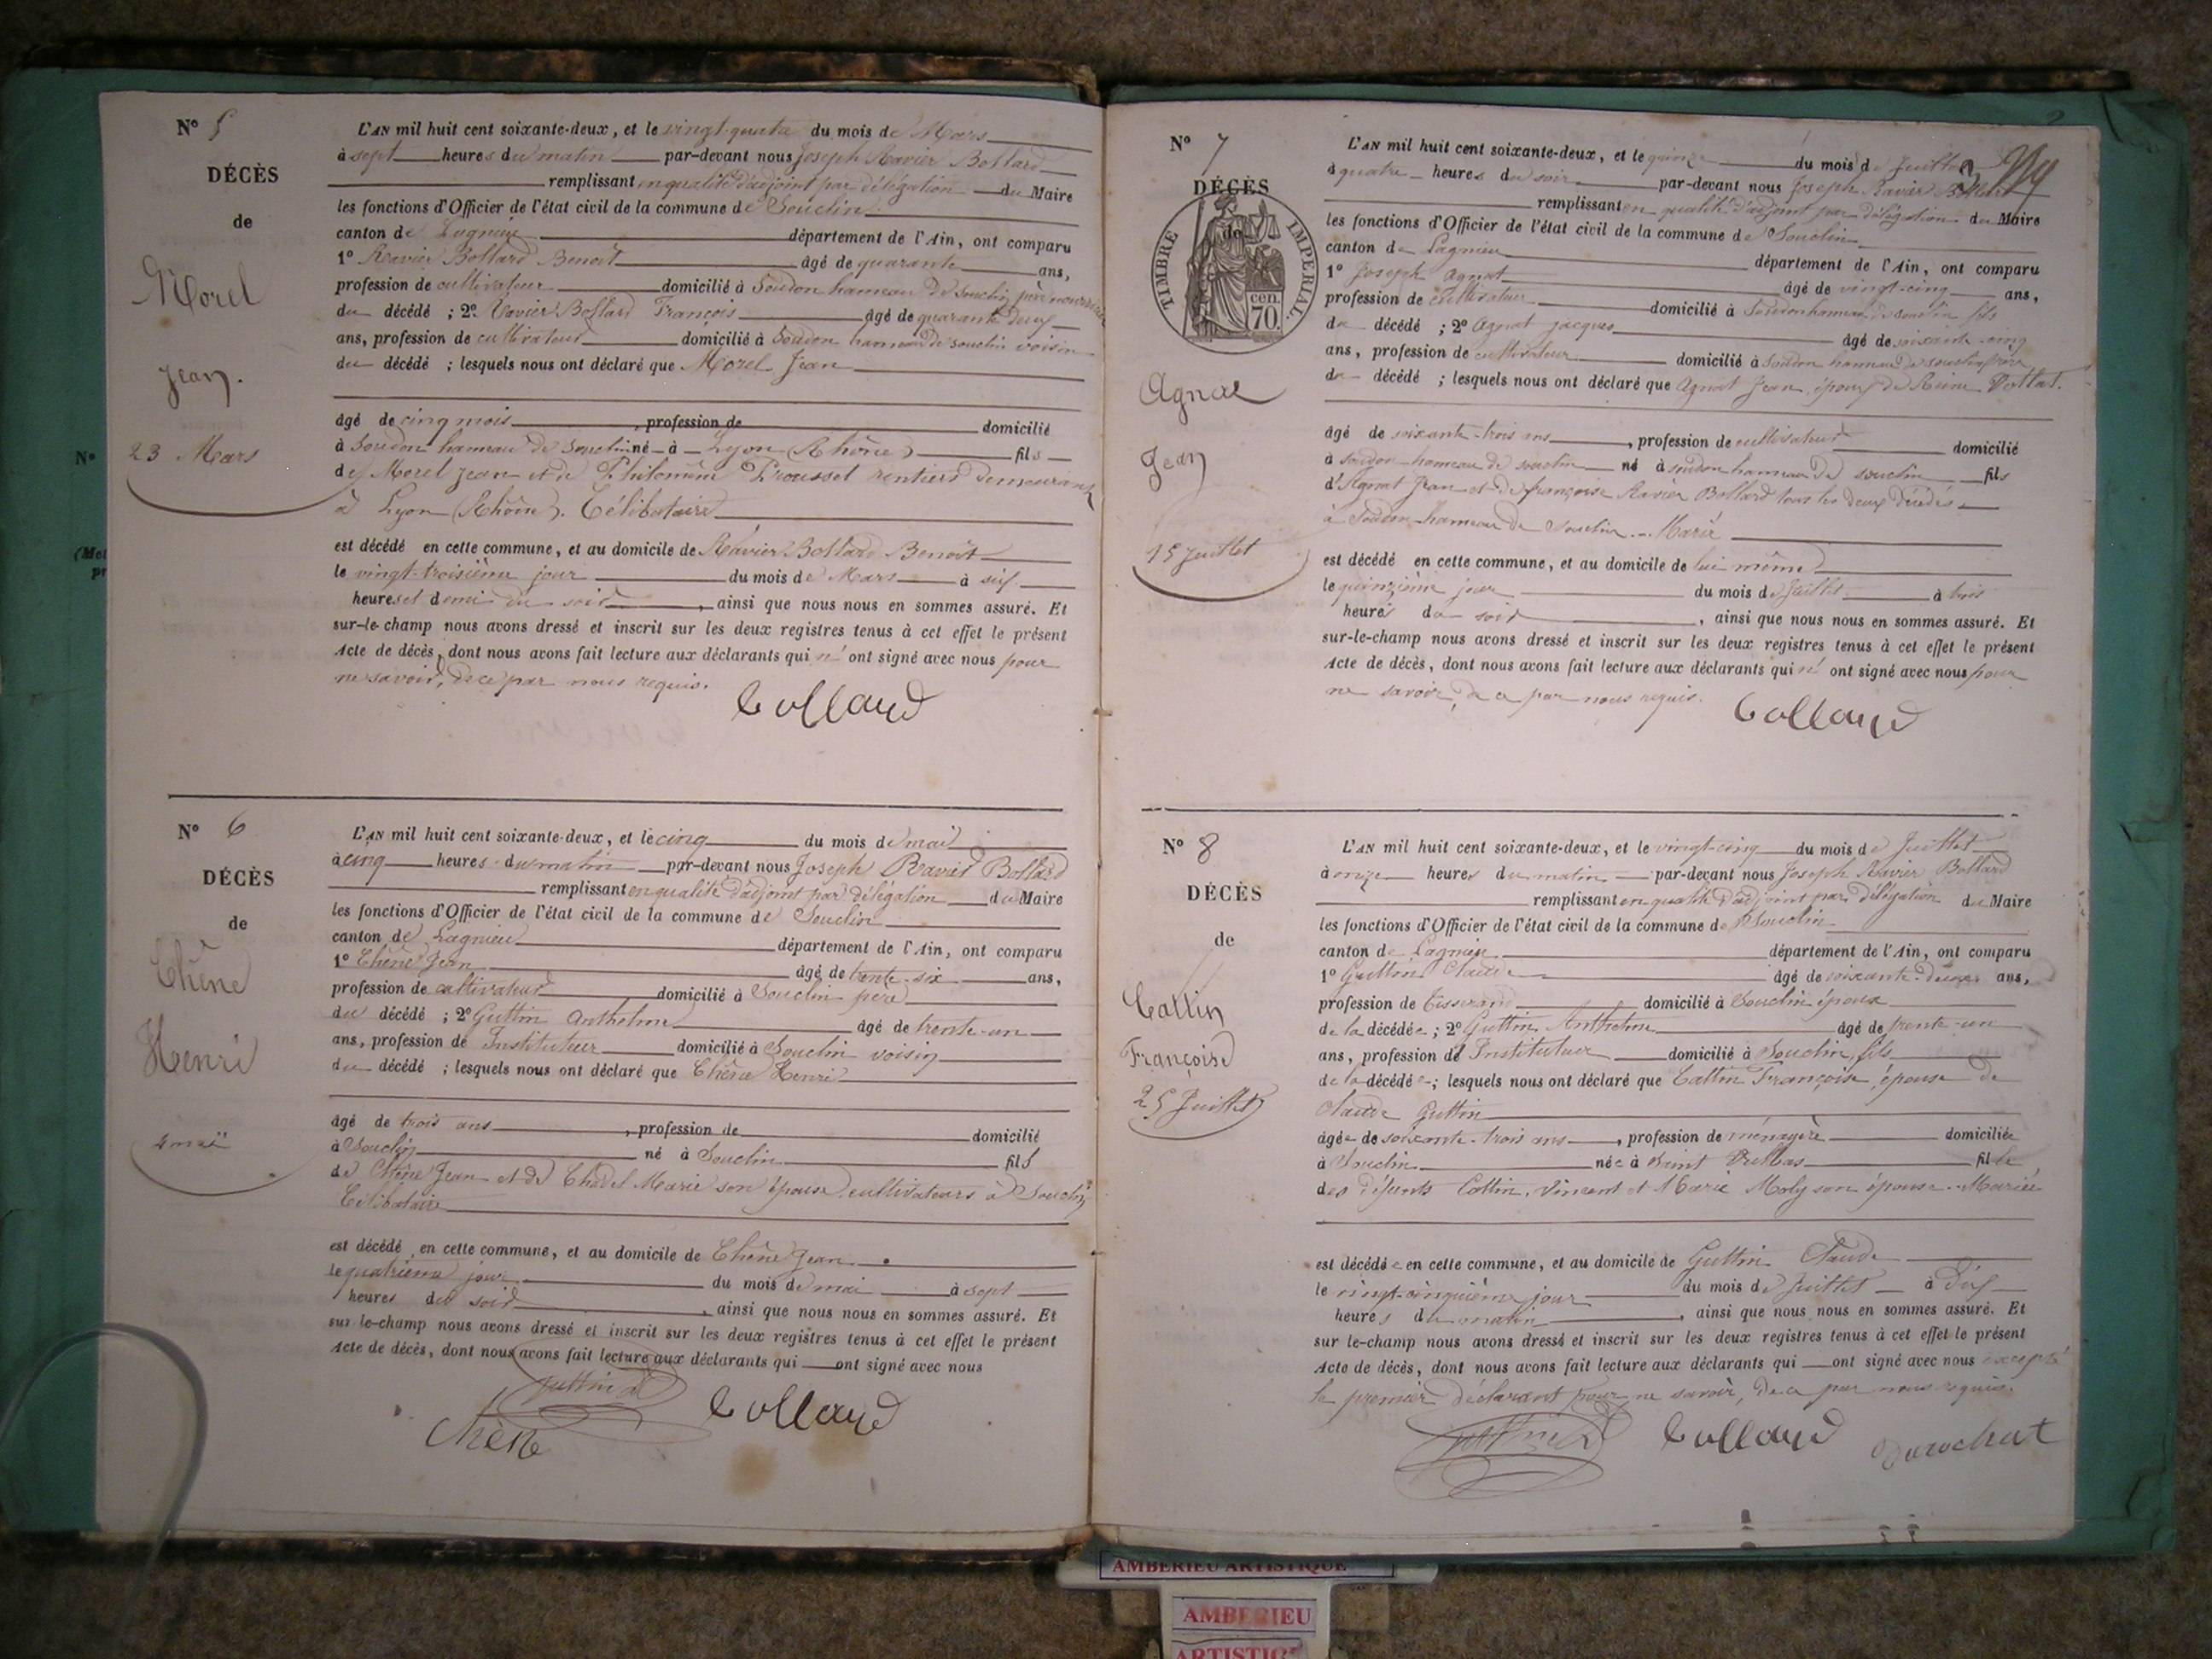 N° 5
DÉCÈS
de
Morel
Jean.
23 Mars
L'AN mil huit cent soixante-deux, et le vingt-quatre du mois de Mars
à sept heures du matin par-devant nous Joseph Ravier Bollard
remplissant en qualité d'adjoint par délégation du Maire
les fonctions d'Officier de l'état civil de la commune de Souclin
canton de Lagnieu département de l'Ain, ont comparu
1° Ravier Bollard Benoît âgé de quarante ans,
profession de cultivateur domicilié à Soudon hameau de Souclin père nourricier
du décédé ; 2° Ravier Bollard François âgé de quarante deux
ans, profession de cultivateur domicilié à Soudon hameau de Souclin voisin
du décédé ; lesquels nous ont déclaré que Morel Jean
âgé de cinq mois, profession de domicilié
à Soudon hameau de Souclin né à Lyon (Rhône) fils
de Morel Jean et de Philomène Prousset rentiers demeurant
à Lyon (Rhône). Célibataire
est décédé en cette commune, et au domicile de Ravier Bollard Benoît
le vingt-troisième jour du mois de Mars à six
heures et demi du soir, ainsi que nous nous en sommes assuré. Et
sur-le-champ nous avons dressé et inscrit sur les deux registres tenus à cet effet le présent
Acte de décès, dont nous avons fait lecture aux déclarants qui n' ont signé avec nous pour
ne savoir, de ce par nous requis.
Bollard
N° 6
DÉCÈS
de
Chêne
Henri
4 mai
L'AN mil huit cent soixante-deux, et le cinq du mois de mai
à cinq heures du matin par-devant nous Joseph Ravier Bollard
remplissant en qualité d'adjoint par délégation du Maire
les fonctions d'Officier de l'état civil de la commune de Souclin
canton de Lagnieu département de l'Ain, ont comparu
1° Chêne Jean âgé de trente-six ans,
profession de cultivateur domicilié à Souclin père
du décédé ; 2° Guttin Anthelme âgé de trente-un
ans, profession de Instituteur domicilié à Souclin voisin
du décédé ; lesquels nous ont déclaré que Chêne Henri
âgé de trois ans, profession de domicilié
à Souclin né à Souclin fils
de Chêne Jean et de Marie son épouse cultivateurs à Souclin
Célibataire
est décédé en cette commune, et au domicile de Chêne Jean
le quatrième jour du mois de mai à sept
heures du soir, ainsi que nous nous en sommes assuré. Et
sur le-champ nous avons dressé et inscrit sur les deux registres tenus à cet effet le présent
Acte de décès, dont nous avons fait lecture aux déclarants qui ont signé avec nous
Guttin A
Chêne
Bollard
N° 7
DÉCÈS
de
TIMBRE IMPERIAL.
70. cen.
Agnat
Jean
15 Juillet
L'AN mil huit cent soixante-deux, et le quinze du mois de Juillet
à quatre heures du soir par-devant nous Joseph Ravier Bollard
remplissant en qualité d'adjoint par délégation du Maire
les fonctions d'Officier de l'état civil de la commune de Souclin
canton de Lagnieu département de l'Ain, ont comparu
1° Joseph Agnat âgé de vingt-cinq ans,
profession de cultivateur domicilié à Soudon hameau de Souclin fils
du décédé ; 2° Agnat jacques âgé de soixante-cinq
ans, profession de cultivateur domicilié à Soudon hameau de Souclin frère
du décédé ; lesquels nous ont déclaré que Agnat Jean époux de Reine Vottat.
âgé de soixante-trois ans, profession de cultivateur domicilié
à Soudon hameau de Souclin né à Soudon hameau de Souclin fils
d'Agnat Jean et de françoise Ravier Bollard tous les deux décédés
à Soudon hameau de Souclin. - Marié
est décédé en cette commune, et au domicile de lui même
le quinzième jour du mois de Juillet à trois
heures du soir, ainsi que nous nous en sommes assuré. Et
sur-le-champ nous avons dressé et inscrit sur les deux registres tenus à cet effet le présent
Acte de décès, dont nous avons fait lecture aux déclarants qui n' ont signé avec nous pour
ne savoir, de ce par nous requis.
Bollard
N° 8
DÉCÈS
de
Cattin
Françoise
25 Juillet
L'AN mil huit cent soixante-deux, et le vingt-cinq du mois de Juillet
à onze heures du matin par-devant nous Joseph Ravier Bollard
remplissant en qualité d'adjoint par délégation du Maire
les fonctions d'Officier de l'état civil de la commune de Souclin
canton de Lagnieu département de l'Ain, ont comparu
1° Guttin Claude âgé de soixante-deux ans,
profession de Tisserand domicilié à Souclin époux
de la décédée ; 2° Guttin Anthelme âgé de trente-un
ans, profession de Instituteur domicilié à Souclin, fils
de la décédée ; lesquels nous ont déclaré que Cattin Françoise, épouse de
Claude Guttin
âgée de soixante-trois ans, profession de ménagère domiciliée
à Souclin née à Saint Vulbas fille
des défunts Cattin, Vincent et Marie Moly son épouse. - Mariée
est décédée en cette commune, et au domicile de Guttin Claude
le vingt-cinquième jour du mois de Juillet à dix
heures du matin, ainsi que nous nous en sommes assuré. Et
sur le-champ nous avons dressé et inscrit sur les deux registres tenus à cet effet le présent
Acte de décès, dont nous avons fait lecture aux déclarants qui ont signé avec nous excepté
le premier déclarant pour ne savoir, de ce par nous requis.
Guttin A
Bollard
Durochat
AMBERIEU ARTISTIQUE
AMBERIEU
ARTISTIQ